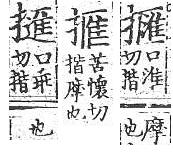 口淮切揩摩也
苦懷切揩摩也
口乖切揩也